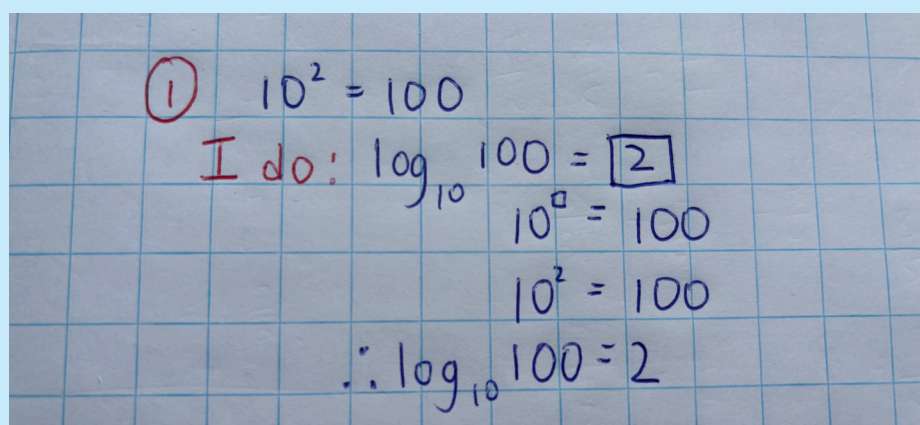 ① 10² = 100
I do: log₁₀ 100 = 2
10□ = 100
10² = 100
∴ log₁₀ 100 = 2